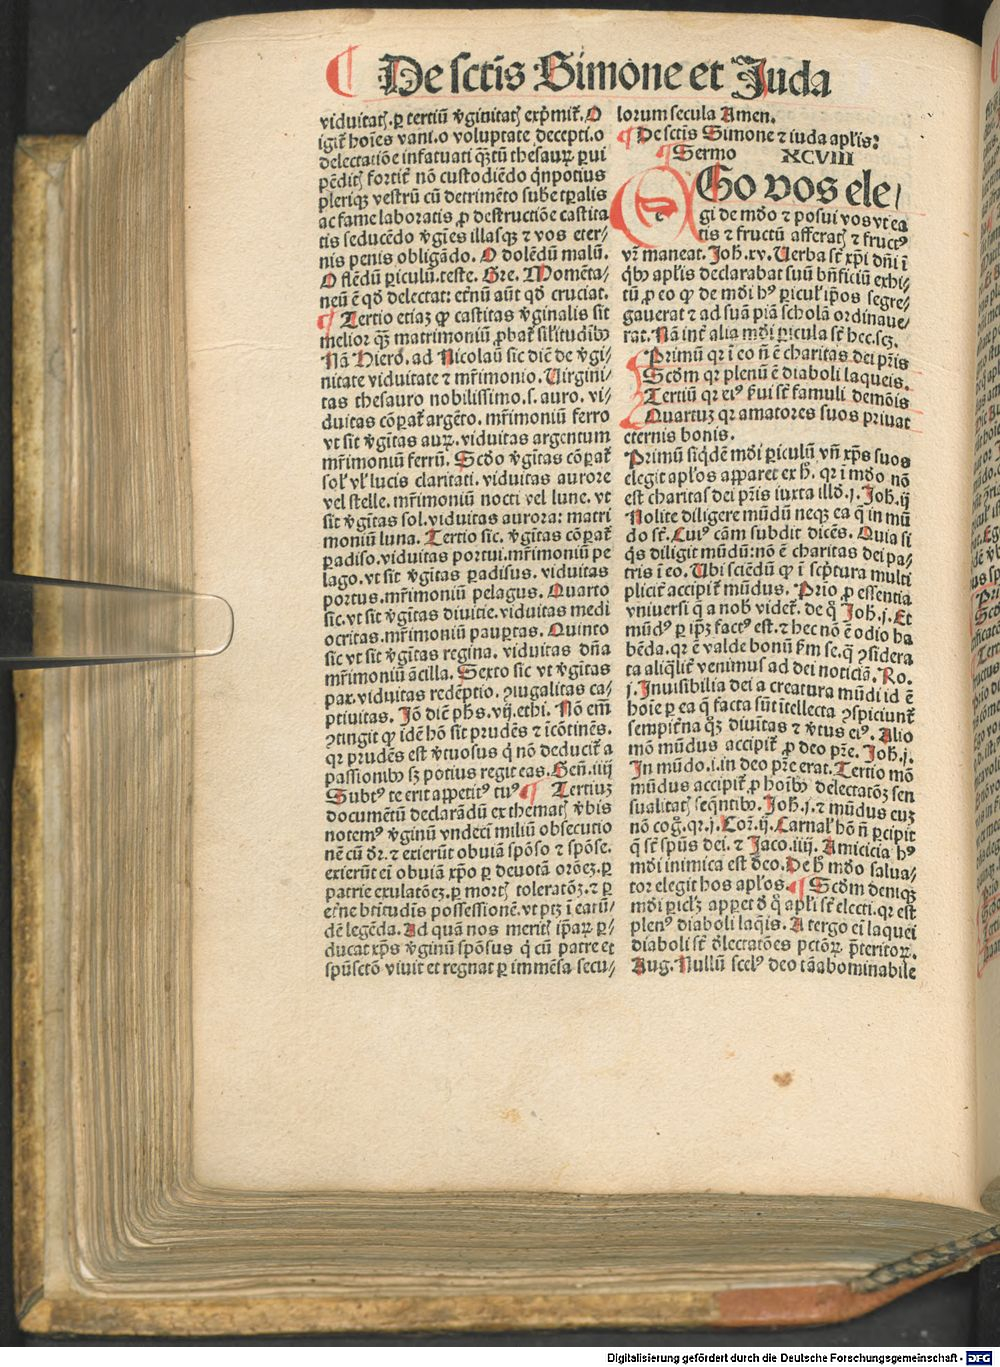 De sctis Simone et Juda
viduitatꝭ. ꝑ tertiū v̄ginitatꝭ exp̄mit᷑. O
igit᷑ hoīes vani. o voluptate decepti. o
delectatiōe infatuati qͣꝫtū thesauꝝ ꝑui
pēditꝭ fortit᷑ nō custodiēdo qͥnpotius
pleriqꝫ vestrū cū detrimēto sube tꝑalis
ac fame laboratis ꝓ destructiōe castita
tis seducēdo v̄gīes illasqꝫ ⁊ vos eter⸗
nis penis obligādo. O dolēdū malū.
O flēdū ꝑiculū. teste. Gre. Momēta⸗
neū ē qd̄ delectat: et̄nū aūt qd̄ cruciat.
¶ Tertio etiaꝫ ꝙ castitas v̄ginalis sit
melior qͣꝫ matrimoniū ꝓbat᷑ silitudībꝰ
Nā Hiero. ad Nicolaū sic diē de v̄gi⸗
nitate viduitate ⁊ mr̄imonio. Virgini⸗
tas thesauro nobilissimo. s. auro. vi⸗
duitas cōꝑat᷑ argēto. mr̄imoniū ferro
vt sit v̄gītas auꝝ. viduitas argentum
mr̄imoniū ferrū. Scd̄o v̄gītas cōꝑat᷑
sol' vl' lucis claritati. viduitas aurore
vel stelle. mr̄imoniū nocti vel lune. vt
sit v̄gītas sol. viduitas aurora: matri
moniū luna. Tertio sic. v̄gītas cōꝑat᷑
ꝑadiso. viduitas portui. mr̄imoniū pe
lago. vt sit v̄gītas ꝑadisus. viduitas
portus. mr̄imoniū pelagus. Quarto
sic. vt sit v̄gītas diuitie. viduitas medi
ocritas. mr̄imoniū pauꝑtas. Quinto
sic vt sit v̄gītas regina. viduitas dn̄a
mr̄imoniū ācilla. Sexto sic vt v̄gītas
pax. viduitas redēptio. ꝯiugalitas ca⸗
ptiuitas. Jō diē ph̄s. vij. ethi. Nō em̄
ꝯtingit ꝙ idē hō sit prudēs ⁊ icōtinēs.
qr prudēs est v̄tuosus qͥ nō deducit᷑ a
passionibꝰ sꝫ potius regit eas. Gen̄. iiij
Subtꝰ te erit appetitꝰ tuꝰ ¶ Tertiuꝫ
documētū declarādū ex thematꝭ v̄bis
notemꝰ v̄ginū vndecī miliū obsecutio
nē cū dr̄. ⁊ exierūt obuiā spōso ⁊ spōse.
exierūt ei obuiā xp̄o ꝑ deuotā orōeꝫ. ꝑ
patrie exulatōeꝫ. ꝑ mortꝭ toleratōꝫ. ⁊ ꝑ
et̄ne btitudīs possessionē. vt ptꝫ ī earū⸗
dē legēda. Ad quā nos meritꝭ ip̄aꝝ ꝑ⸗
ducat xp̄s v̄ginū spōsus qͥ cū patre et
spūsctō viuit et regnat ꝑ immēsa secu⸗
lorum secula Amen.
¶ De sctis Simone ⁊ iuda apl'is:
¶ Sermo XCVIII
EGo vos ele⸗
gi de mōdo ⁊ posui vos vt ea
tis ⁊ fructū afferatꝭ ⁊ fructꝰ
vr̄ maneat. Joh̄. xv. Verba st̄ xp̄i dn̄i ī
qͥbꝰ apl'is declarabat suū bn̄ficiū exhi⸗
tū ꝓ eo ꝙ de mōdi hꝰ ꝑicul' ip̄os segre⸗
gauerat ⁊ ad suā piā scholā ordinaue⸗
rat. Nā int᷑ alia mōdi ꝑicula st̄ hec. scꝫ.
Primū qr ī eo n̄ ē charitas dei pr̄is
Scd̄m qr plenū ē diaboli laqueis.
Tertiū qr eiꝰ s̄ui st̄ famuli demōis
Quartuꝫ qr amatores suos priuat
eternis bonis.
Primū siqͥdē mōdi ꝑiculū vn̄ xp̄s suos
elegit apl'os apparet ex h̄. qr ī mōdo nō
est charitas dei pr̄is iuxta illd̄. j. Joh̄. ij
Nolite diligere mūdū neqꝫ ea qͥ in mū
do st̄. Cuiꝰ cām subdit dicēs. Quia si
qͥs diligit mūdū: nō ē charitas dei pa⸗
tris ī eo. Vbi sciēdū ꝙ ī scp̄tura multi
plicit᷑ accipit᷑ mūdus. Prīo ꝓ essentia
vniuersi q̄ a nob̄ videt᷑. de qͦ Joh̄. j. Et
mūdꝰ ꝑ ip̄ꝫ factꝰ est. ⁊ hec nō ē odio ha
bēda. qr ē valde bonū s̄m se. qͣ ꝯsidera
ta aliqͣlit᷑ venimus ad dei noticiā. Ro.
j. Inuisibilia dei a creatura mūdi id ē
hoīe ꝑ ea q̄ facta sūt ītellecta ꝯspiciunt᷑
sempit᷑na qͦꝫ diuītas ⁊ v̄tus eiꝰ. Alio
mō mūdus accipit᷑ ꝓ deo pr̄e. Joh̄. j.
In mūdo. i. in deo pr̄e erat. Tertio mō
mūdus accipit᷑ ꝓ hoībꝰ delectatōꝫ sen
sualitatꝭ seqn̄tibꝰ. Joh̄. j. ⁊ mūdus euꝫ
nō cog̊. qr. j. Cor̄. ij. Carnal' hō n̄ ꝑcipit
q̄ st̄ spūs dei. ⁊ Jaco. iiij. Amicicia hꝰ
mōdi inimica est deo. De h̄ mōdo salua⸗
tor elegit hos apl'os. ¶ Scd̄m deniqꝫ
mōdi ꝑicl'ꝫ apꝑet d̄ qͦ apl'i st̄ electi. qr est
plenꝰ diaboli laqͥis. A tergo ei laquei
diaboli st̄ d̄lectatōes pctōꝝ p̄teritoꝝ.
Aug. Nullū scelꝰ deo tā abominabile
Digitalisierung gefördert durch die Deutsche Forschungsgemeinschaft - DFG